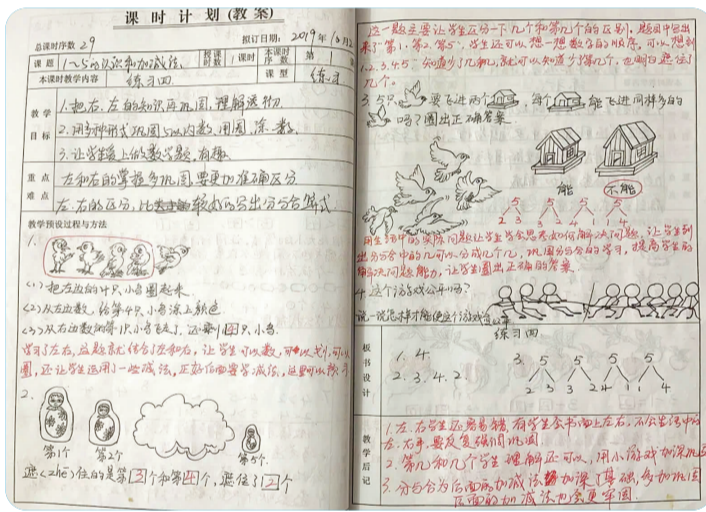 课时计划(教案)
总课时序数 29 拟订日期: 2019年10月2
课题 1~5的认识和加减法 授课时数 1课时 本课时序数 第1
本课时教学内容 练习四 课型 练习
教学目标
1.把右、左的知识再巩固,理解透彻.
2.用多种形式巩固5以内数,用圈、涂、数.
3.让学生爱上的数学题,有趣.
重点难点
左和右的掌握多巩固,要更加准确区分
左、右的区分,比较好的写出分与合算式.
教学预设过程与方法
1.
(1)把左边的4只小鸟圈起来.
(2)从左边数,给第4只小鸟涂上颜色
(3)从右边数的第1只小鸟飞走了,还剩4只小鸟.
学习了左右,这题就结合了左和右,让学生可以数,可以划,可以
圈,还让学生运用了一些减法,正好后面要学减法,这里可以
2.
第1个 第2个 第5个
遮<zhē>住的是第3个和第4个,遮住了2个
这一题主要让学生区分一下几个和第几个的区别,题目中已出
来了第1、第2、第5,学生还可以想一想数字的顺序,可以想到
1.2.3.4.5.
几个。
3. 5只 要飞进两个 ,每个 能飞进同样多的
吗?圈出正确答案
能 不能
5 5 5 5
2 3 3 2 1 4
用生活中的实际问题让学生学会思考如何解决问题,让学生列
出分与合中的几可以分成几个几,巩固分与合的学习,提高学生的
解决问题能力,让学生圈出正确的答案.
4.这个游戏公平吗?
说一说怎样才能使这个游戏公平
板书设计
练习四
1. 4.
2. 3. 4. 2.
3. 5 5 5 5
2 3 3 2 4 1 1 4
教学后记
1.左、右学生还容易错,有学生会书面上左右,不会生活中的
左、右手,要反复强调巩固.
2.第几和几个学生理解还可以,用小游戏加深巩固
3.分与合为后面的加减法加深了基础,多加巩固
后面的加减法也会更牢固.